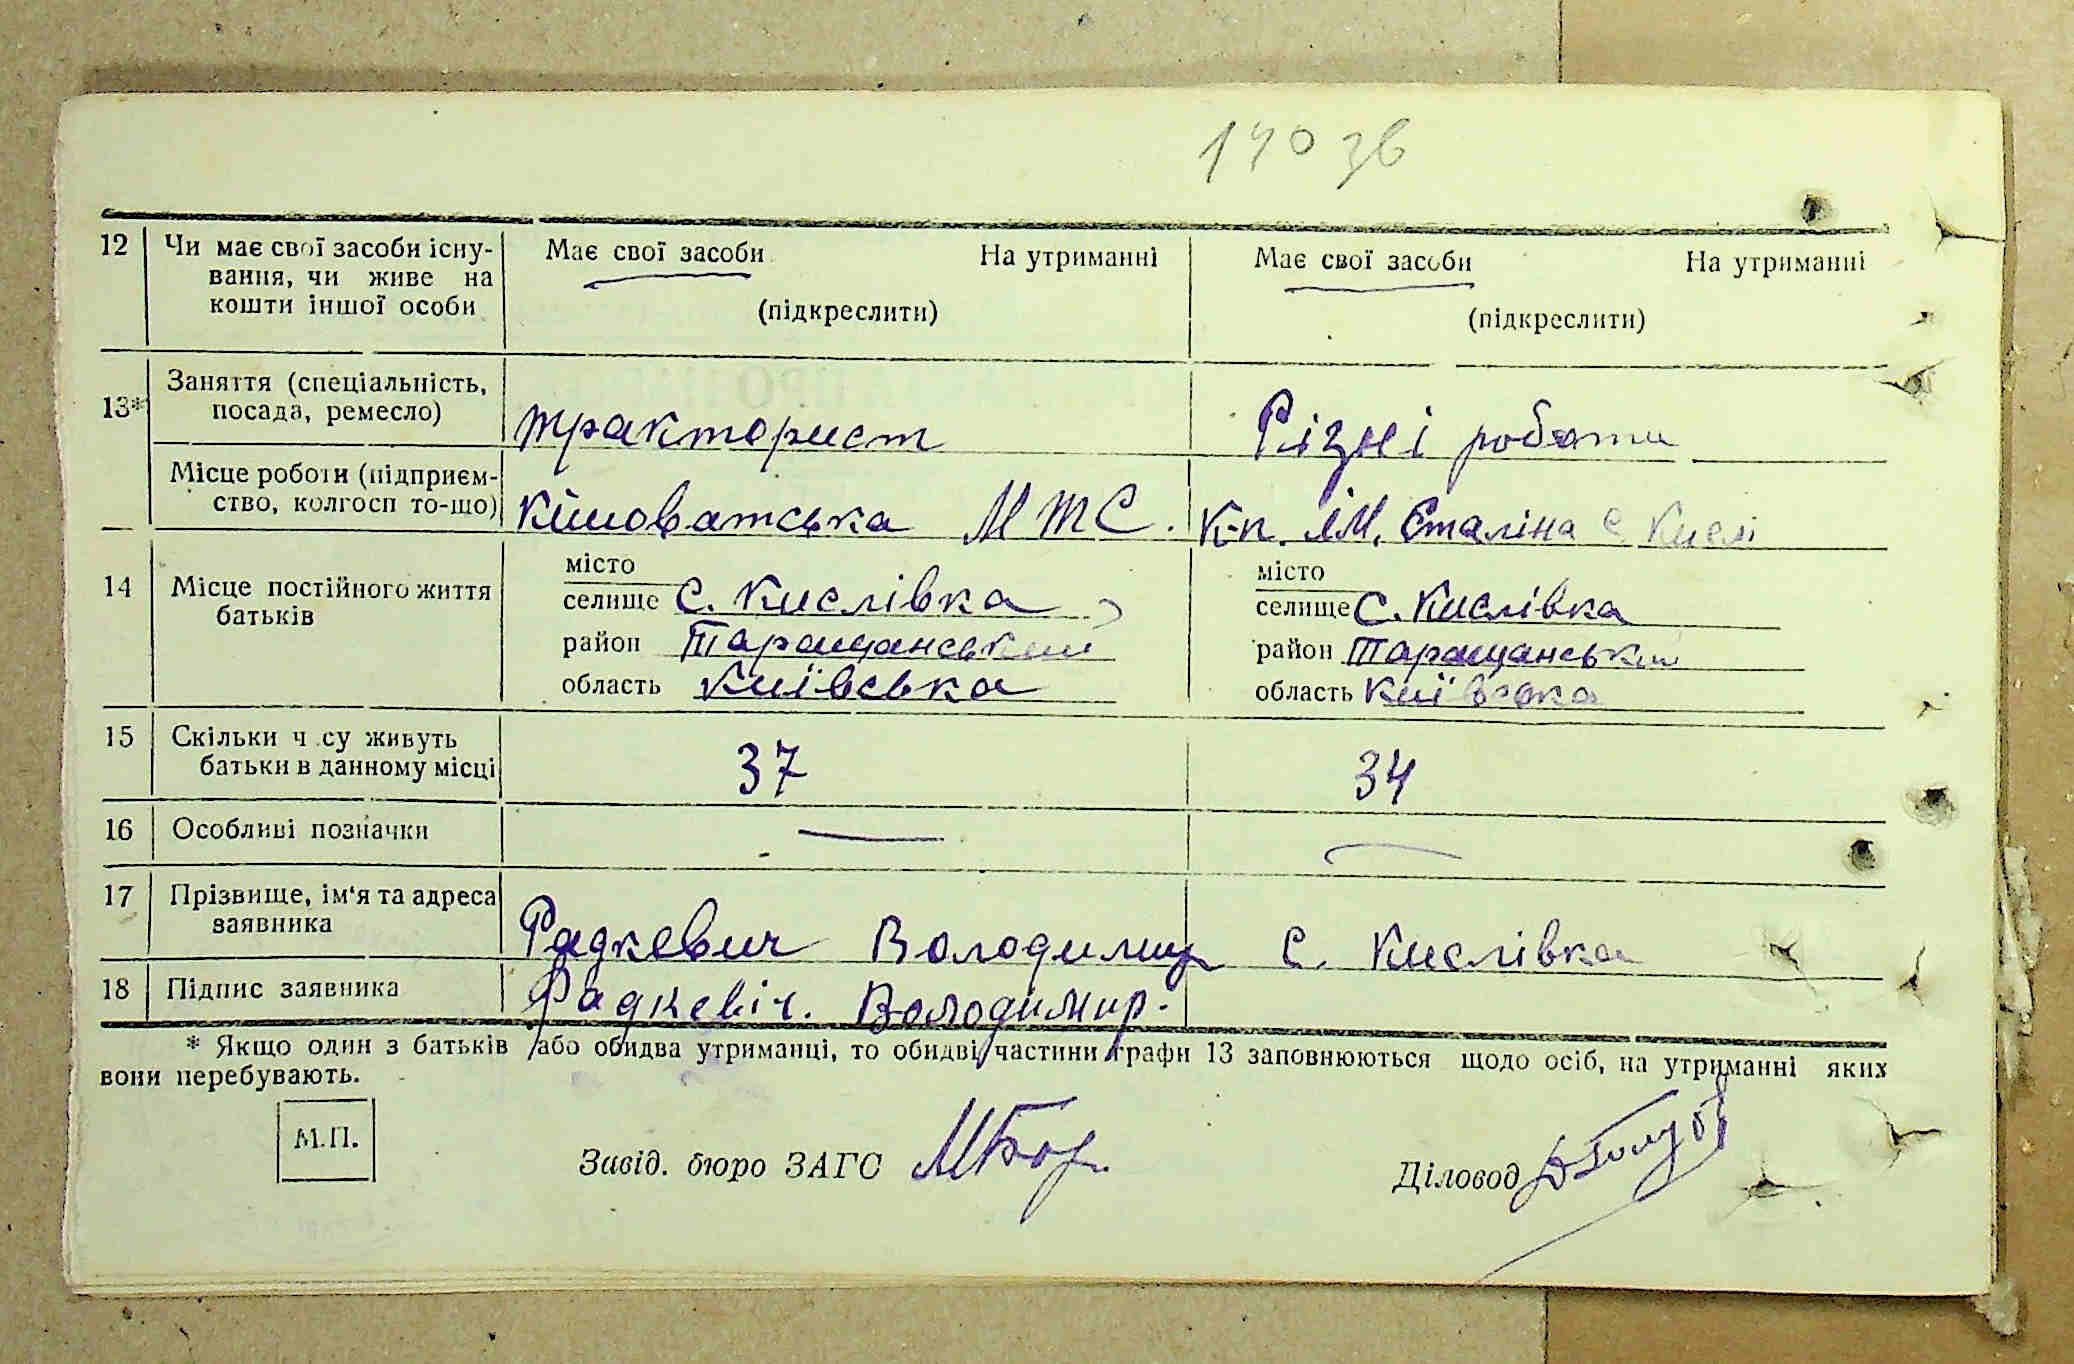 140 зв
12 Чи має свої засоби існу- Має свої засоби На утриманні Має свої засоби На утриманні
вання, чи живе на
кошти іншої особи (підкреслити) (підкреслити)
13* Заняття (спеціальність,
посада, ремесло) тракторист Різні роботи
Місце роботи (підприєм-
ство, колгосп то-що) Кішоватська МТС. К-п. ім. Сталіна с. Кислі
14 Місце постійного життя
батьків
місто місто
селище с. Кислівка селище с. Кислівка
район Таращанський район Таращанський
область Київська область Київська
15 Скільки ч су живуть
батьки в данному місці 37 34
16 Особливі позначки — —
17 Прізвище, ім'я та адреса
заявника Радкевич Володимир с. Кислівка
18 Підпис заявника Радкевіч. Володимир.
* Якщо один з батьків або обидва утриманці, то обидві частини графи 13 заповнюються щодо осіб, на утриманні яких
вони перебувають.
М.П.
Завід. бюро ЗАГС Діловод